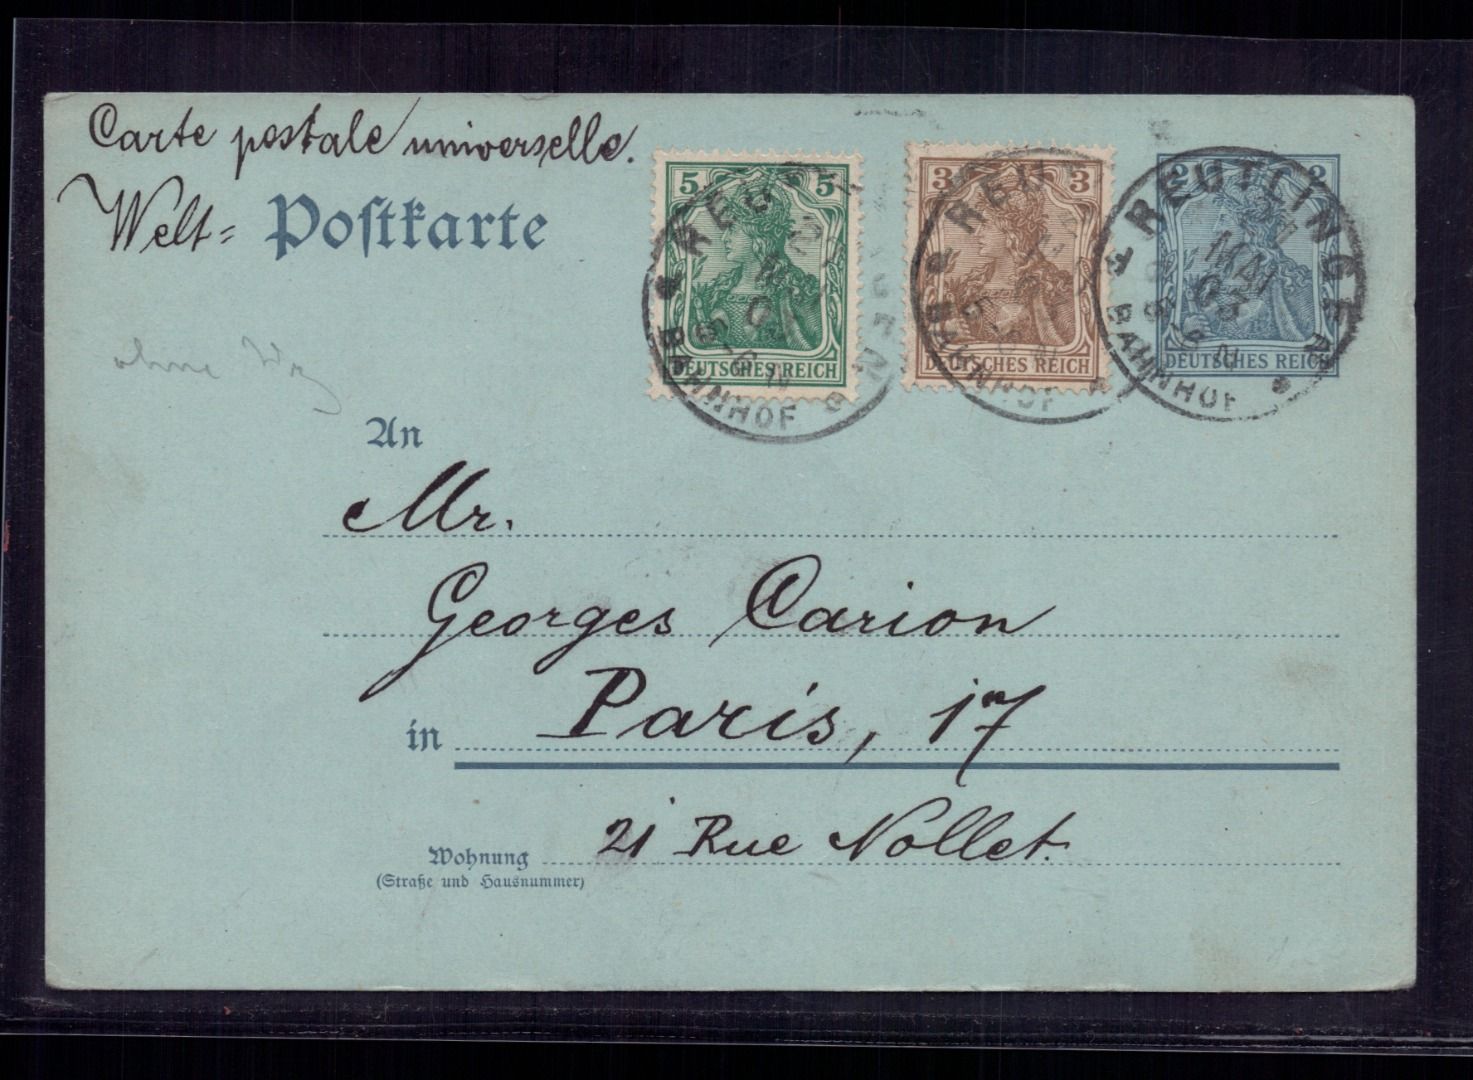 Carte postale universelle.
Welt= Postkarte
5 5
DEUTSCHES REICH
3 3
DEUTSCHES REICH
2 2
DEUTSCHES REICH
REUTLINGEN
MAI
03
5-6 N
BAHNHOF
BAHNHOF
BAHNHOF
ohne
An
Mr.
Georges Carion
in Paris, 17
21 Rue Nollet.
Wohnung
(Straße und Hausnummer)